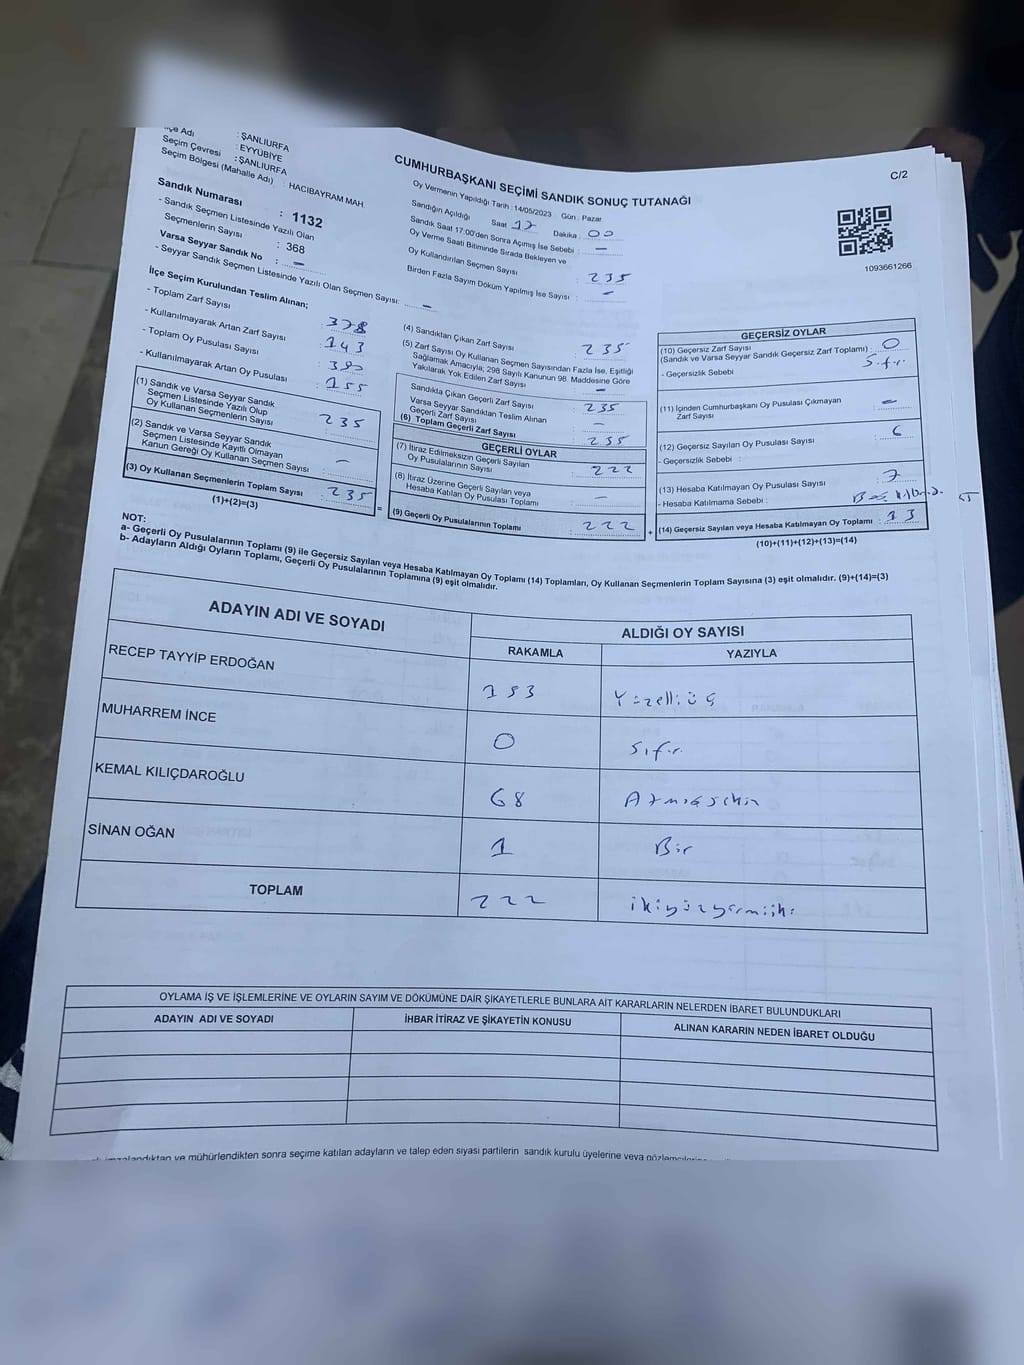 C/2
İlçe Adı : ŞANLIURFA
Seçim Çevresi : EYYÜBİYE
Seçim Bölgesi (Mahalle Adı) : ŞANLIURFA
: HACIBAYRAM MAH.
Sandık Numarası : 1132
- Sandık Seçmen Listesinde Yazılı Olan
Seçmenlerin Sayısı : 368
Varsa Seyyar Sandık No : -
- Seyyar Sandık Seçmen Listesinde Yazılı Olan Seçmen Sayısı: -
CUMHURBAŞKANI SEÇİMİ SANDIK SONUÇ TUTANAĞI
Oy Vermenin Yapıldığı Tarih : 14/05/2023 Gün : Pazar
Sandığın Açıldığı Saat 17 Dakika : 00
Sandık Saat 17:00'den Sonra Açımış İse Sebebi : -
Oy Verme Saati Bitiminde Sırada Bekleyen ve
Oy Kullandırılan Seçmen Sayısı 235
Birden Fazla Sayım Döküm Yapılmış İse Sayısı : -
1093661266
İlçe Seçim Kurulundan Teslim Alınan;
- Toplam Zarf Sayısı : 378
- Kullanılmayarak Artan Zarf Sayısı : 143
- Toplam Oy Pusulası Sayısı : 390
- Kullanılmayarak Artan Oy Pusulası : 155
(1) Sandık ve Varsa Seyyar Sandık
Seçmen Listesinde Yazılı Olup
Oy Kullanan Seçmenlerin Sayısı : 235
(2) Sandık ve Varsa Seyyar Sandık
Seçmen Listesinde Kayıtlı Olmayan
Kanun Gereği Oy Kullanan Seçmen Sayısı : -
(3) Oy Kullanan Seçmenlerin Toplam Sayısı : 235
(1)+(2)=(3)
=
(4) Sandıktan Çıkan Zarf Sayısı : 235
(5) Zarf Sayısı Oy Kullanan Seçmen Sayısından Fazla İse, Eşitliği
Sağlamak Amacıyla, 298 Sayılı Kanunun 98. Maddesine Göre
Yakılarak Yok Edilen Zarf Sayısı : -
Sandıkta Çıkan Geçerli Zarf Sayısı : 235
Varsa Seyyar Sandıktan Teslim Alınan
Geçerli Zarf Sayısı : -
(6) Toplam Geçerli Zarf Sayısı : 235
GEÇERLİ OYLAR
(7) İtiraz Edilmeksizin Geçerli Sayılan
Oy Pusulalarının Sayısı : 222
(8) İtiraz Üzerine Geçerli Sayılan veya
Hesaba Katılan Oy Pusulası Toplamı : -
(9) Geçerli Oy Pusulalarının Toplamı : 222
+
GEÇERSİZ OYLAR
(10) Geçersiz Zarf Sayısı : 0
(Sandık ve Varsa Seyyar Sandık Geçersiz Zarf Toplamı) :
- Geçersizlik Sebebi Sıfır
(11) İçinden Cumhurbaşkanı Oy Pusulası Çıkmayan
Zarf Sayısı : -
(12) Geçersiz Sayılan Oy Pusulası Sayısı : 6
- Geçersizlik Sebebi :
(13) Hesaba Katılmayan Oy Pusulası Sayısı : 7
- Hesaba Katılmama Sebebi :
(14) Geçersiz Sayılan veya Hesaba Katılmayan Oy Toplamı : 13
(10)+(11)+(12)+(13)=(14)
NOT:
a- Geçerli Oy Pusulalarının Toplamı (9) ile Geçersiz Sayılan veya Hesaba Katılmayan Oy Toplamı (14) Toplamları, Oy Kullanan Seçmenlerin Toplam Sayısına (3) eşit olmalıdır. (9)+(14)=(3)
b- Adayların Aldığı Oyların Toplamı, Geçerli Oy Pusulalarının Toplamına (9) eşit olmalıdır.
ADAYIN ADI VE SOYADI ALDIĞI OY SAYISI
RAKAMLA YAZIYLA
RECEP TAYYİP ERDOĞAN 153 Yüzelliüç
MUHARREM İNCE 0 Sıfır
KEMAL KILIÇDAROĞLU 68 Atmışsekiz
SİNAN OĞAN 1 Bir
TOPLAM 222 ikiyüzyirmiiki
OYLAMA İŞ VE İŞLEMLERİNE VE OYLARIN SAYIM VE DÖKÜMÜNE DAİR ŞİKAYETLERLE BUNLARA AİT KARARLARIN NELERDEN İBARET BULUNDUKLARI
ADAYIN ADI VE SOYADI İHBAR İTİRAZ VE ŞİKAYETİN KONUSU ALINAN KARARIN NEDEN İBARET OLDUĞU
imzalandıktan ve mühürlendikten sonra seçime katılan adayların ve talep eden siyasi partilerin sandık kurulu üyelerine veya